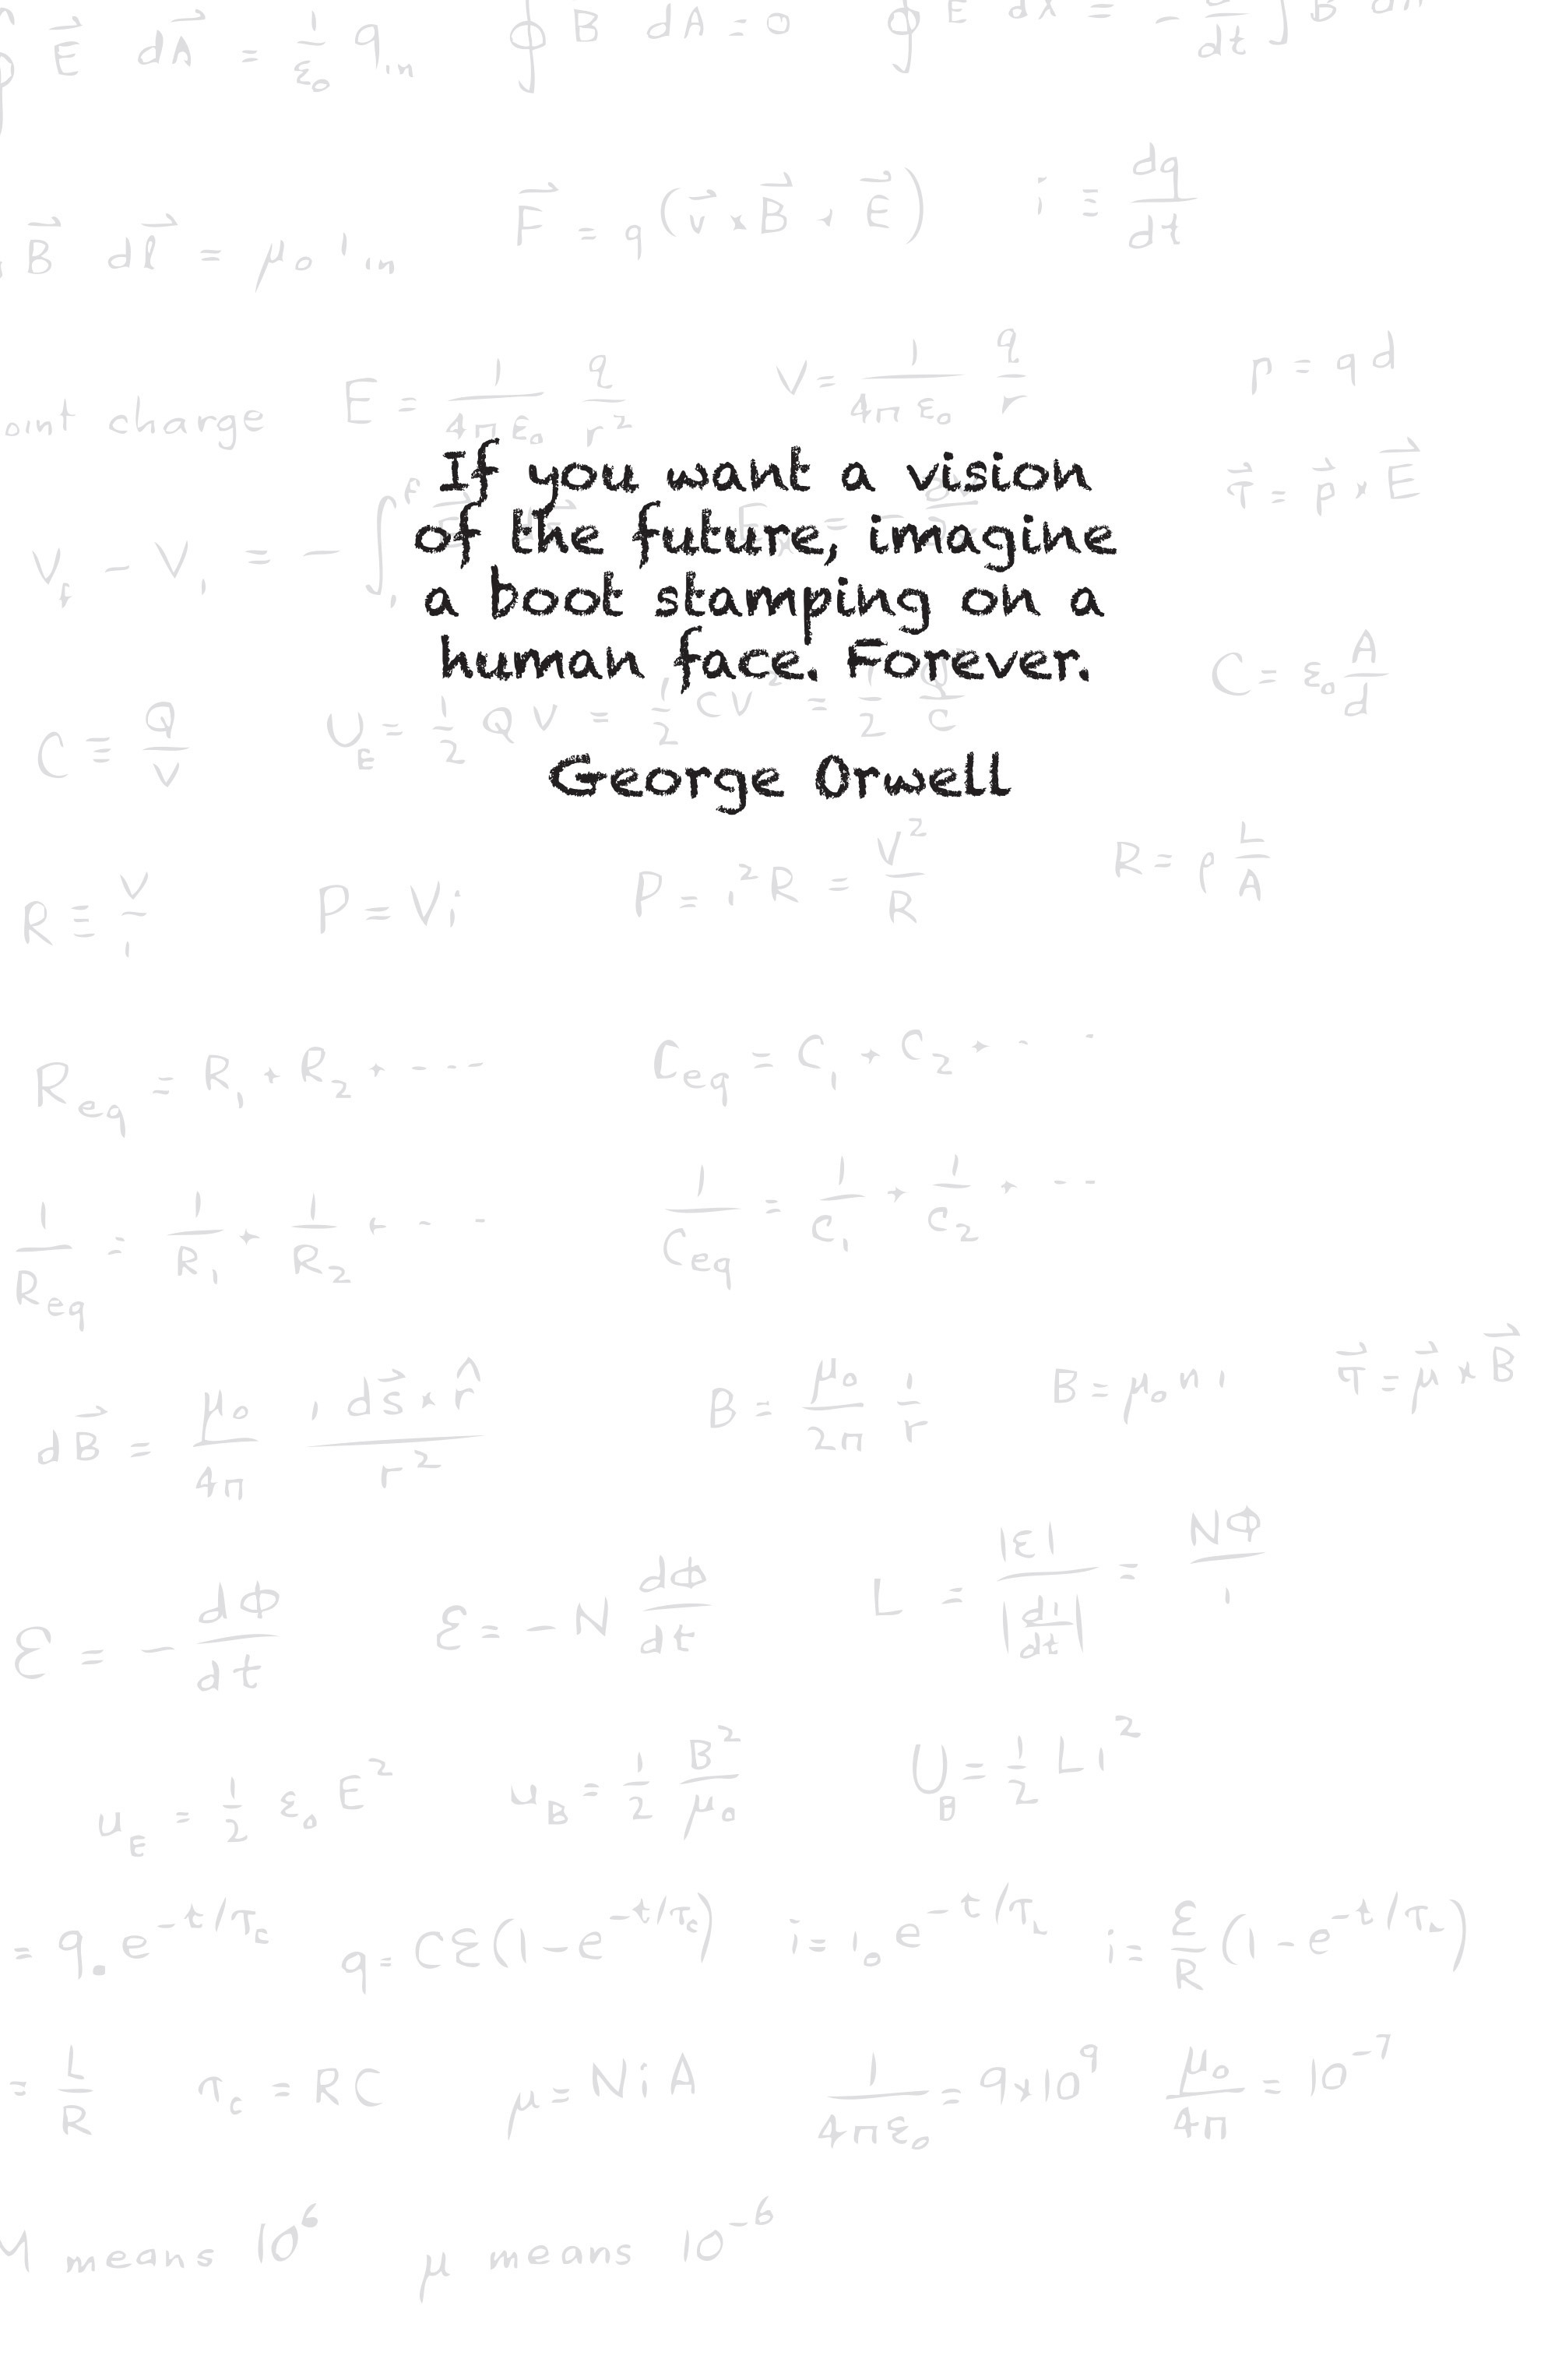 E⃗ dA⃗ = 1/ε₀ qᵢₙ ∮ B dA = 0 ∮ E dλ = - /dt ∫ B
B⃗ dl⃗ = μ₀ iᵢₙ F⃗ = q (v⃗ × B⃗ + E⃗) i ≡ dq/dt
charge E = 1/4πε₀ q/r² V = 1/4πε₀ q/r p = q d
If you want a vision
V_f - V_i = - ∫ τ⃗ = p⃗ × E⃗
of the future, imagine
a boot stamping on a
human face. Forever.
C ≡ Q/V U_E = 1/2 QV = 1/2 CV² = 1/2 Q²/C C = ε₀ A/d
George Orwell
R ≡ V/i P = Vi P = i²R = V²/R R = ρ L/A
R_eq = R₁ + R₂ + --- C_eq = C₁ + C₂ + ---
1/R_eq = 1/R₁ + 1/R₂ + --- 1/C_eq = 1/C₁ + 1/C₂ + ---
dB⃗ = μ₀/4π i ds⃗ × r̂/r² B = μ₀/2π i/r B = μ₀ n i τ⃗ = μ⃗ × B⃗
ℰ = - dΦ/dt ℰ = - N dΦ/dt L = |ℰ|/|di/dt| = NΦ/i
u_E = 1/2 ε₀ E² u_B = 1/2 B²/μ₀ U_B = 1/2 L i²
= q₀ e^(-t/τ_c) q = Cℰ(1 - e^(-t/τ_c)) i = i₀ e^(-t/τ_L) i = ℰ/R (1 - e^(-t/τ_L))
= L/R τ_c = RC μ = NiA 1/4πε₀ = 9×10⁹ μ₀/4π = 10⁻⁷
M means 10⁶ μ means 10⁻⁶